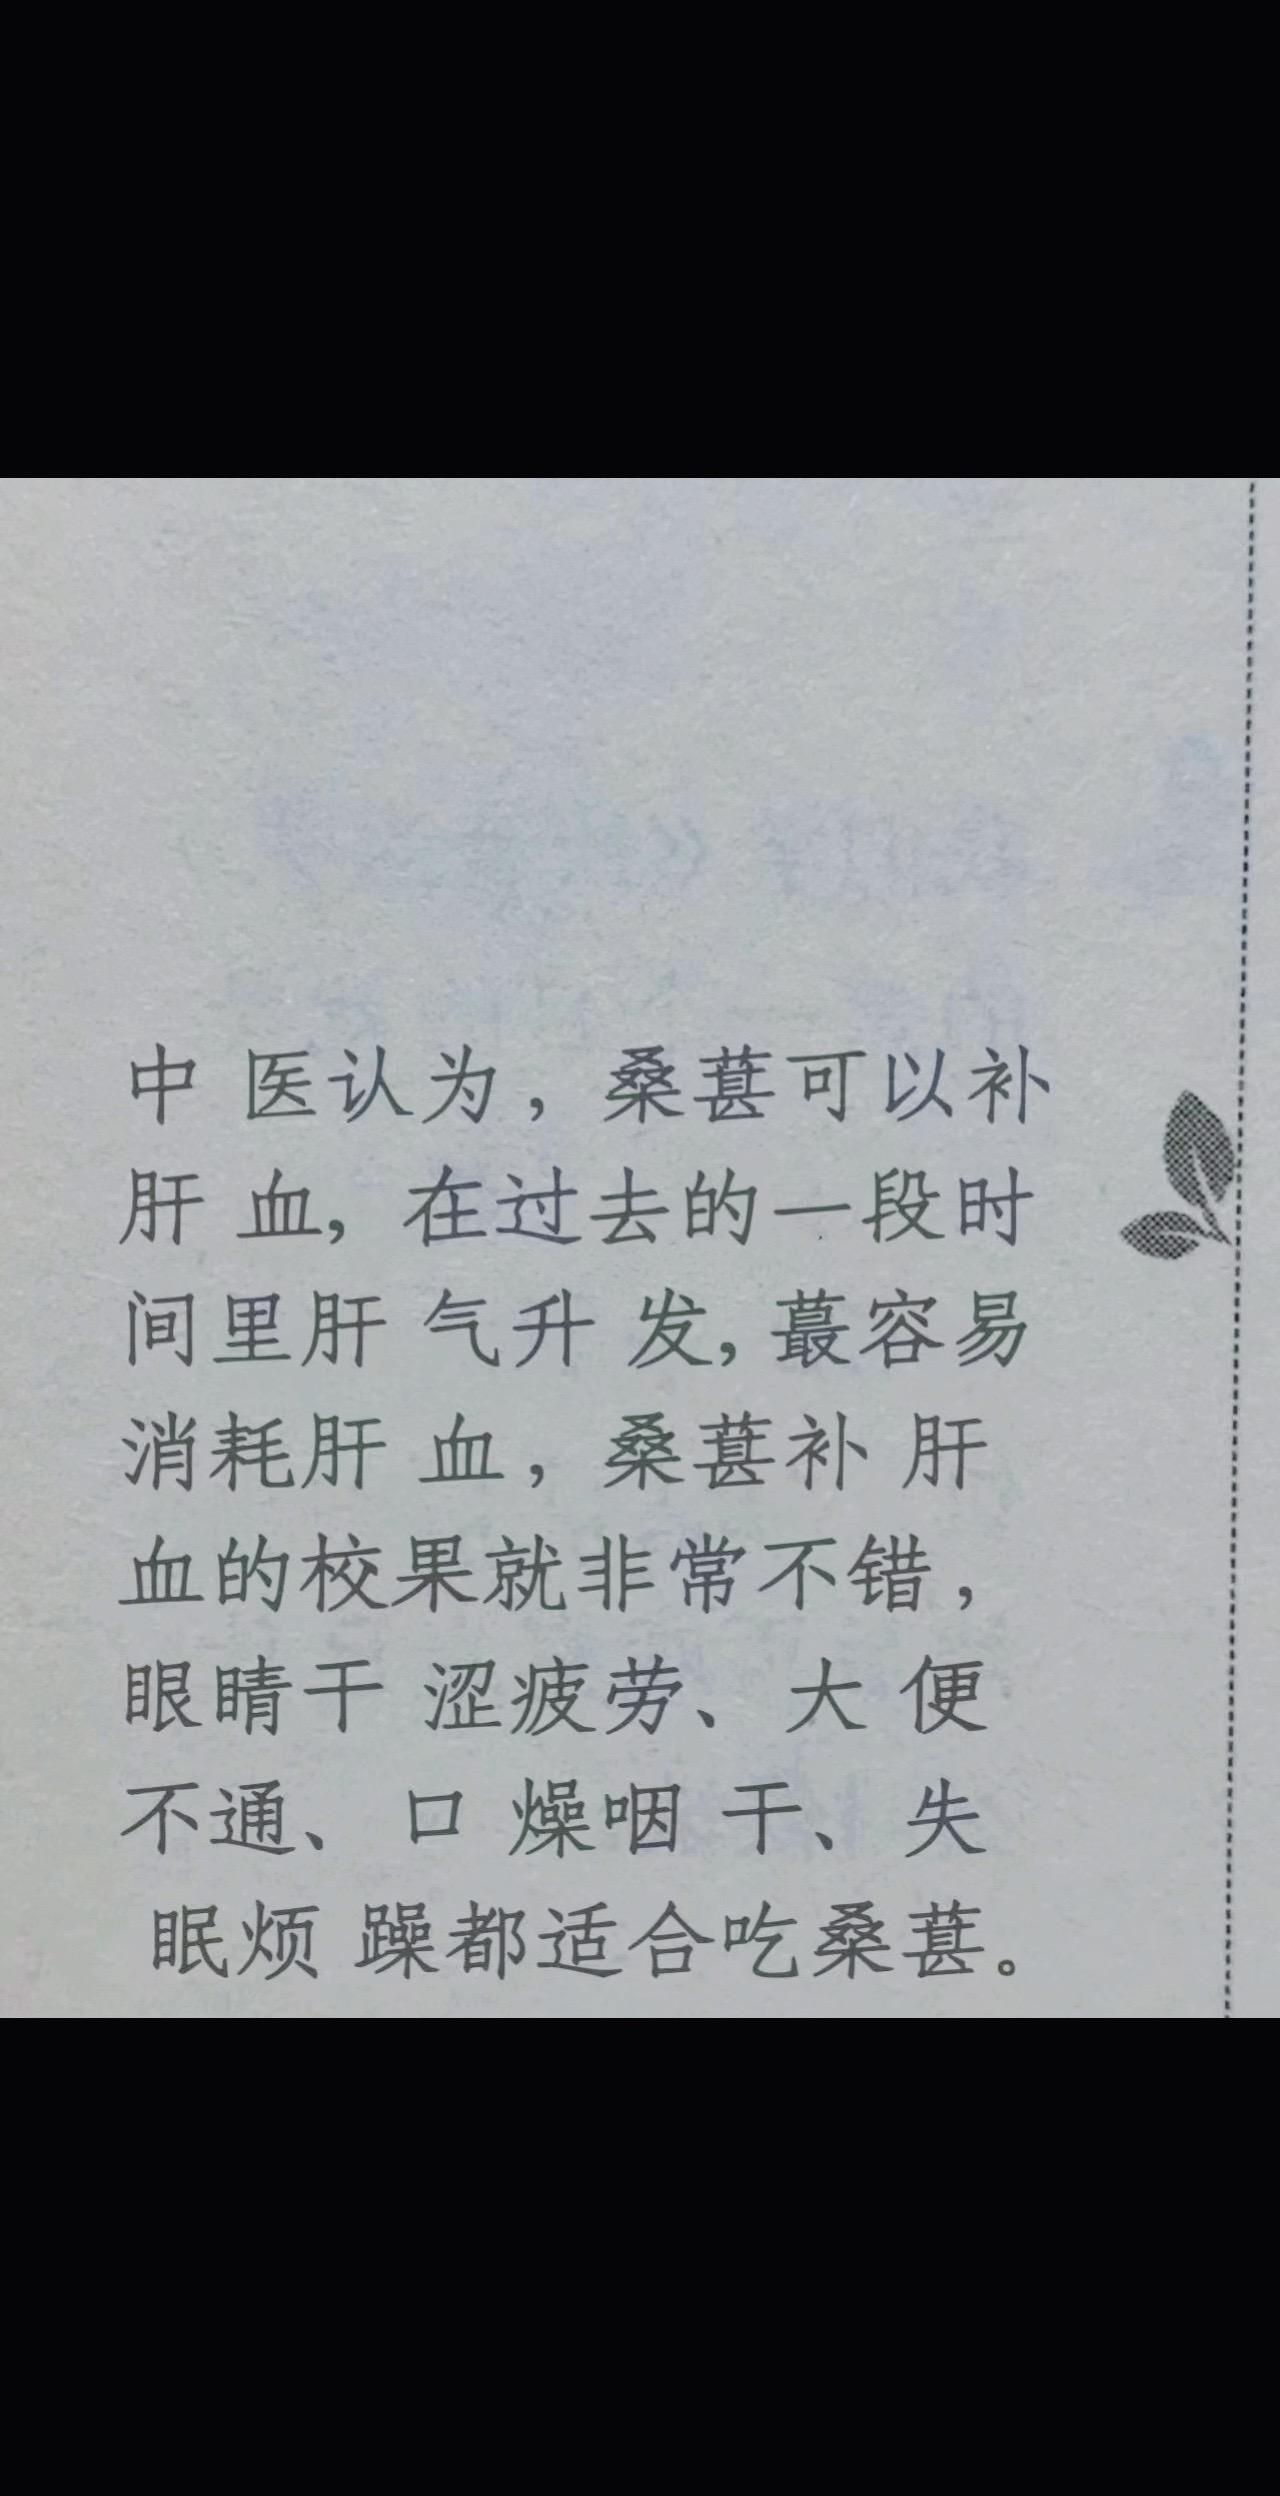 中 医认为，桑葚可以补
肝 血，在过去的一段时
间里肝 气升 发，蕞容易
消耗肝 血，桑葚补 肝
血的校果就非常不错，
眼睛干 涩疲劳、大 便
不通、口 燥咽 干、失
眠烦 躁都适合吃桑葚。